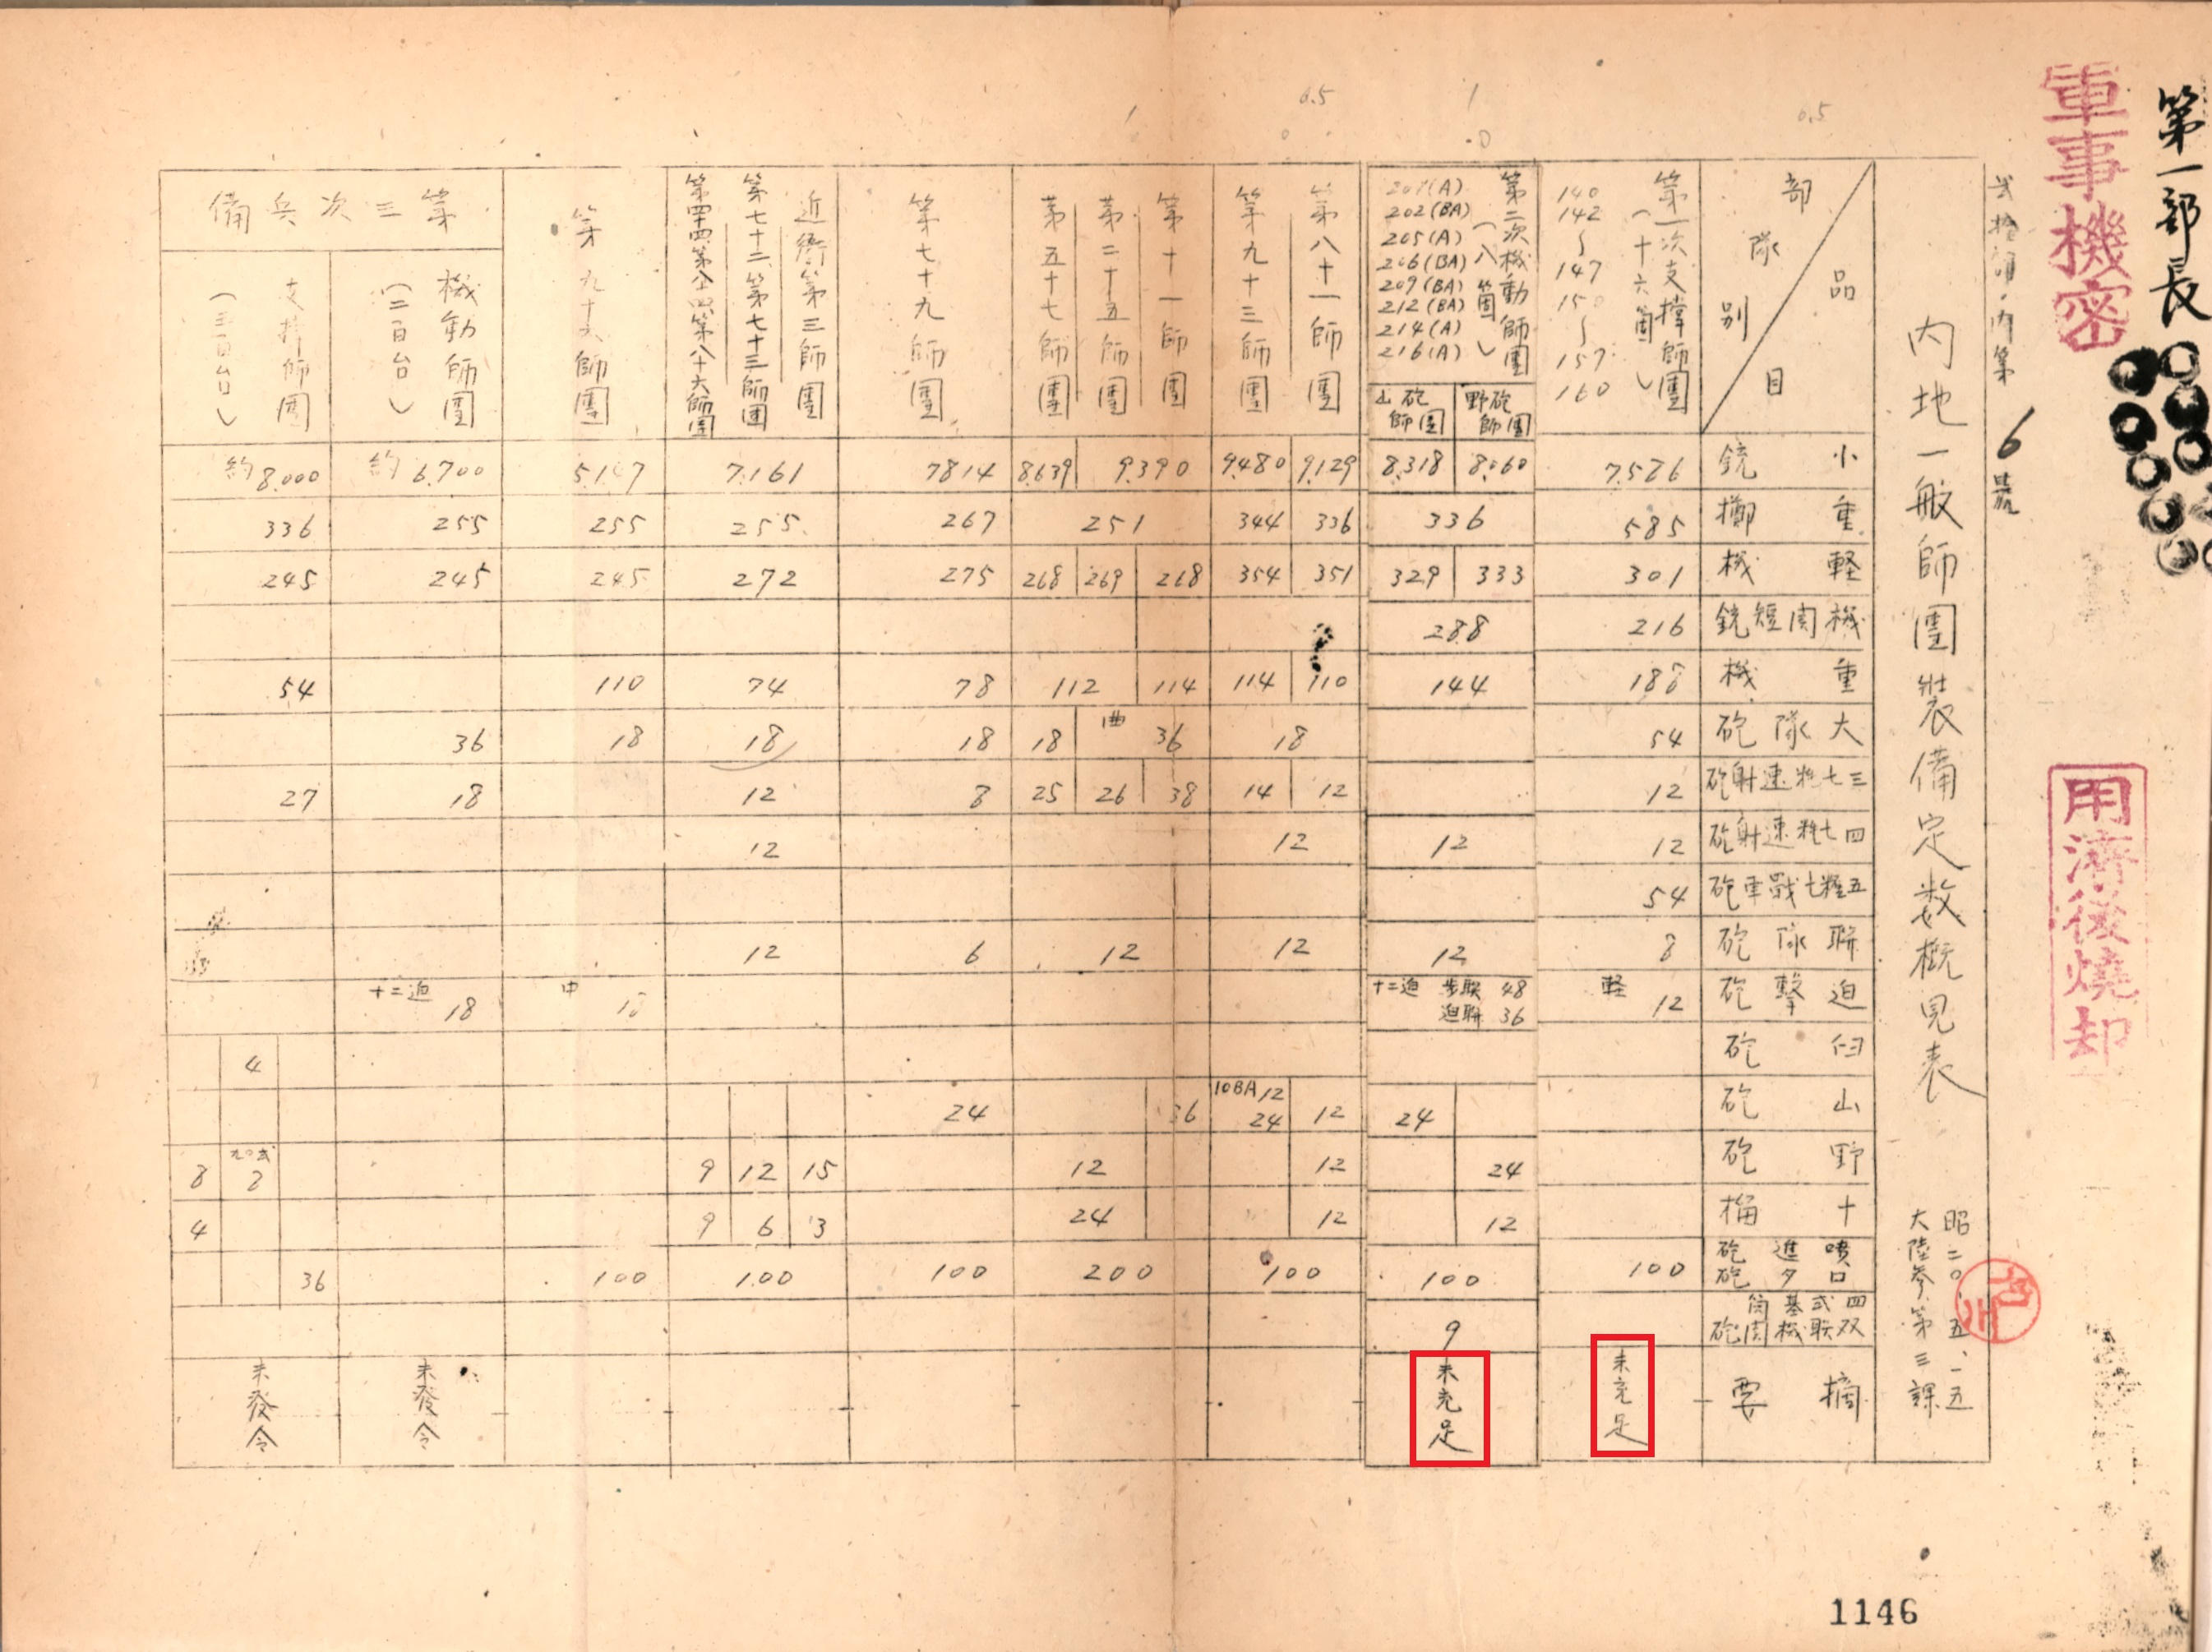 第一部長
軍事機密
用済後焼却
弐拾部ノ内第6號
内地一般師團装備定数概見表
昭二〇、五、一五
大陸参第三課
品目
部隊別
小銃
重擲
軽機
機関短銃
重機
大隊砲
三七粍速射砲
四七粍速射砲
五糎七戰車砲
聯隊砲
迫撃砲
臼砲
山砲
野砲
十榴
噴進砲
ロタ砲
四式基筒
双聯機関砲
摘要
第一次支撑師團
(十六箇)
140
142
〜
147
150
〜
157
160
7.526
585
301
216
188
54
12
12
54
8
軽 12
100
未充足
第二次機動師團
(八箇)
201(A)
202(BA)
205(A)
206(BA)
209(BA)
212(BA)
214(A)
216(A)
野砲師團
山砲師團
8.060
8.318
336
333
329
288
144
12
12
十二迫 歩联 48
迫聯 36
24
24
12
100
9
未充足
第八十一師團
第九十三師團
9.129
9.480
336
344
351
354
110
114
18
12
14
12
12
12
10BA 12
24
12
12
100
第十一師團
第二十五師團
第五十七師團
9.390
8.639
251
268
269
268
114
112
曲 36
18
38
26
25
12
36
12
24
200
第七十九師團
7814
267
275
78
18
8
6
24
100
近衛第三師團
第七十二、第七十三師團
第四十四、第八十四、第八十六師團
7.161
255
272
74
18
12
12
12
15
12
9
3
6
9
100
第九十六師團
255
245
110
18
中
100
第三次兵備
機動師團
(二百台)
約6.700
255
245
36
18
十二迫 18
未發令
支撑師團
(三百台)
約8.000
336
245
54
27
4
九〇式
8
8
4
36
未發令
0.5
1
0
0.5
0
1
1146